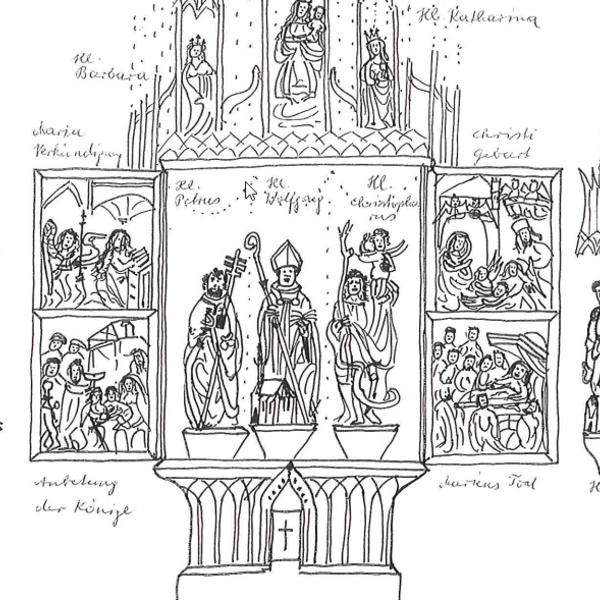 Hl. Katharina
Hl.
Barbara
Maria
Verkündigung
Christi
Geburt
Hl.
Petrus
Hl.
Wolfgang
Hl.
Christopho
rus
Anbetung
der Könige
Mariens Tod